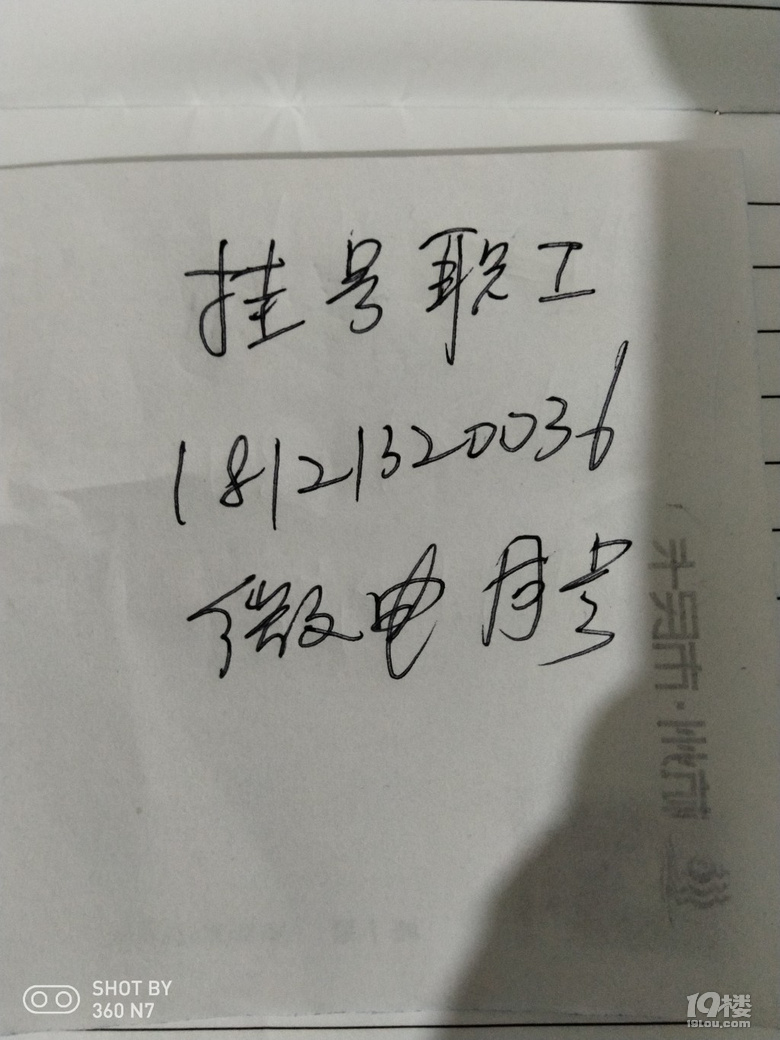 挂号职工
18121320036
微电
SHOT BY
360 N7
19楼
19lou.com